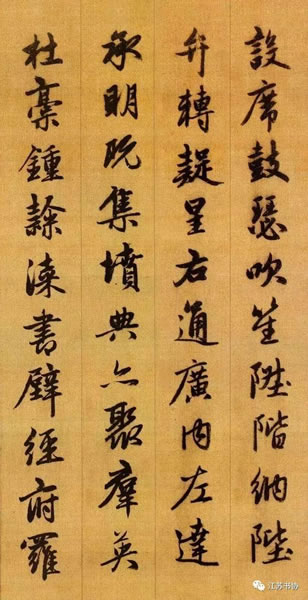 設席鼓瑟吹笙陞階納陛
弁轉疑星右通廣内左達
承明既集墳典亦聚羣英
杜稾鍾隸漆書壁經府羅
江苏书协